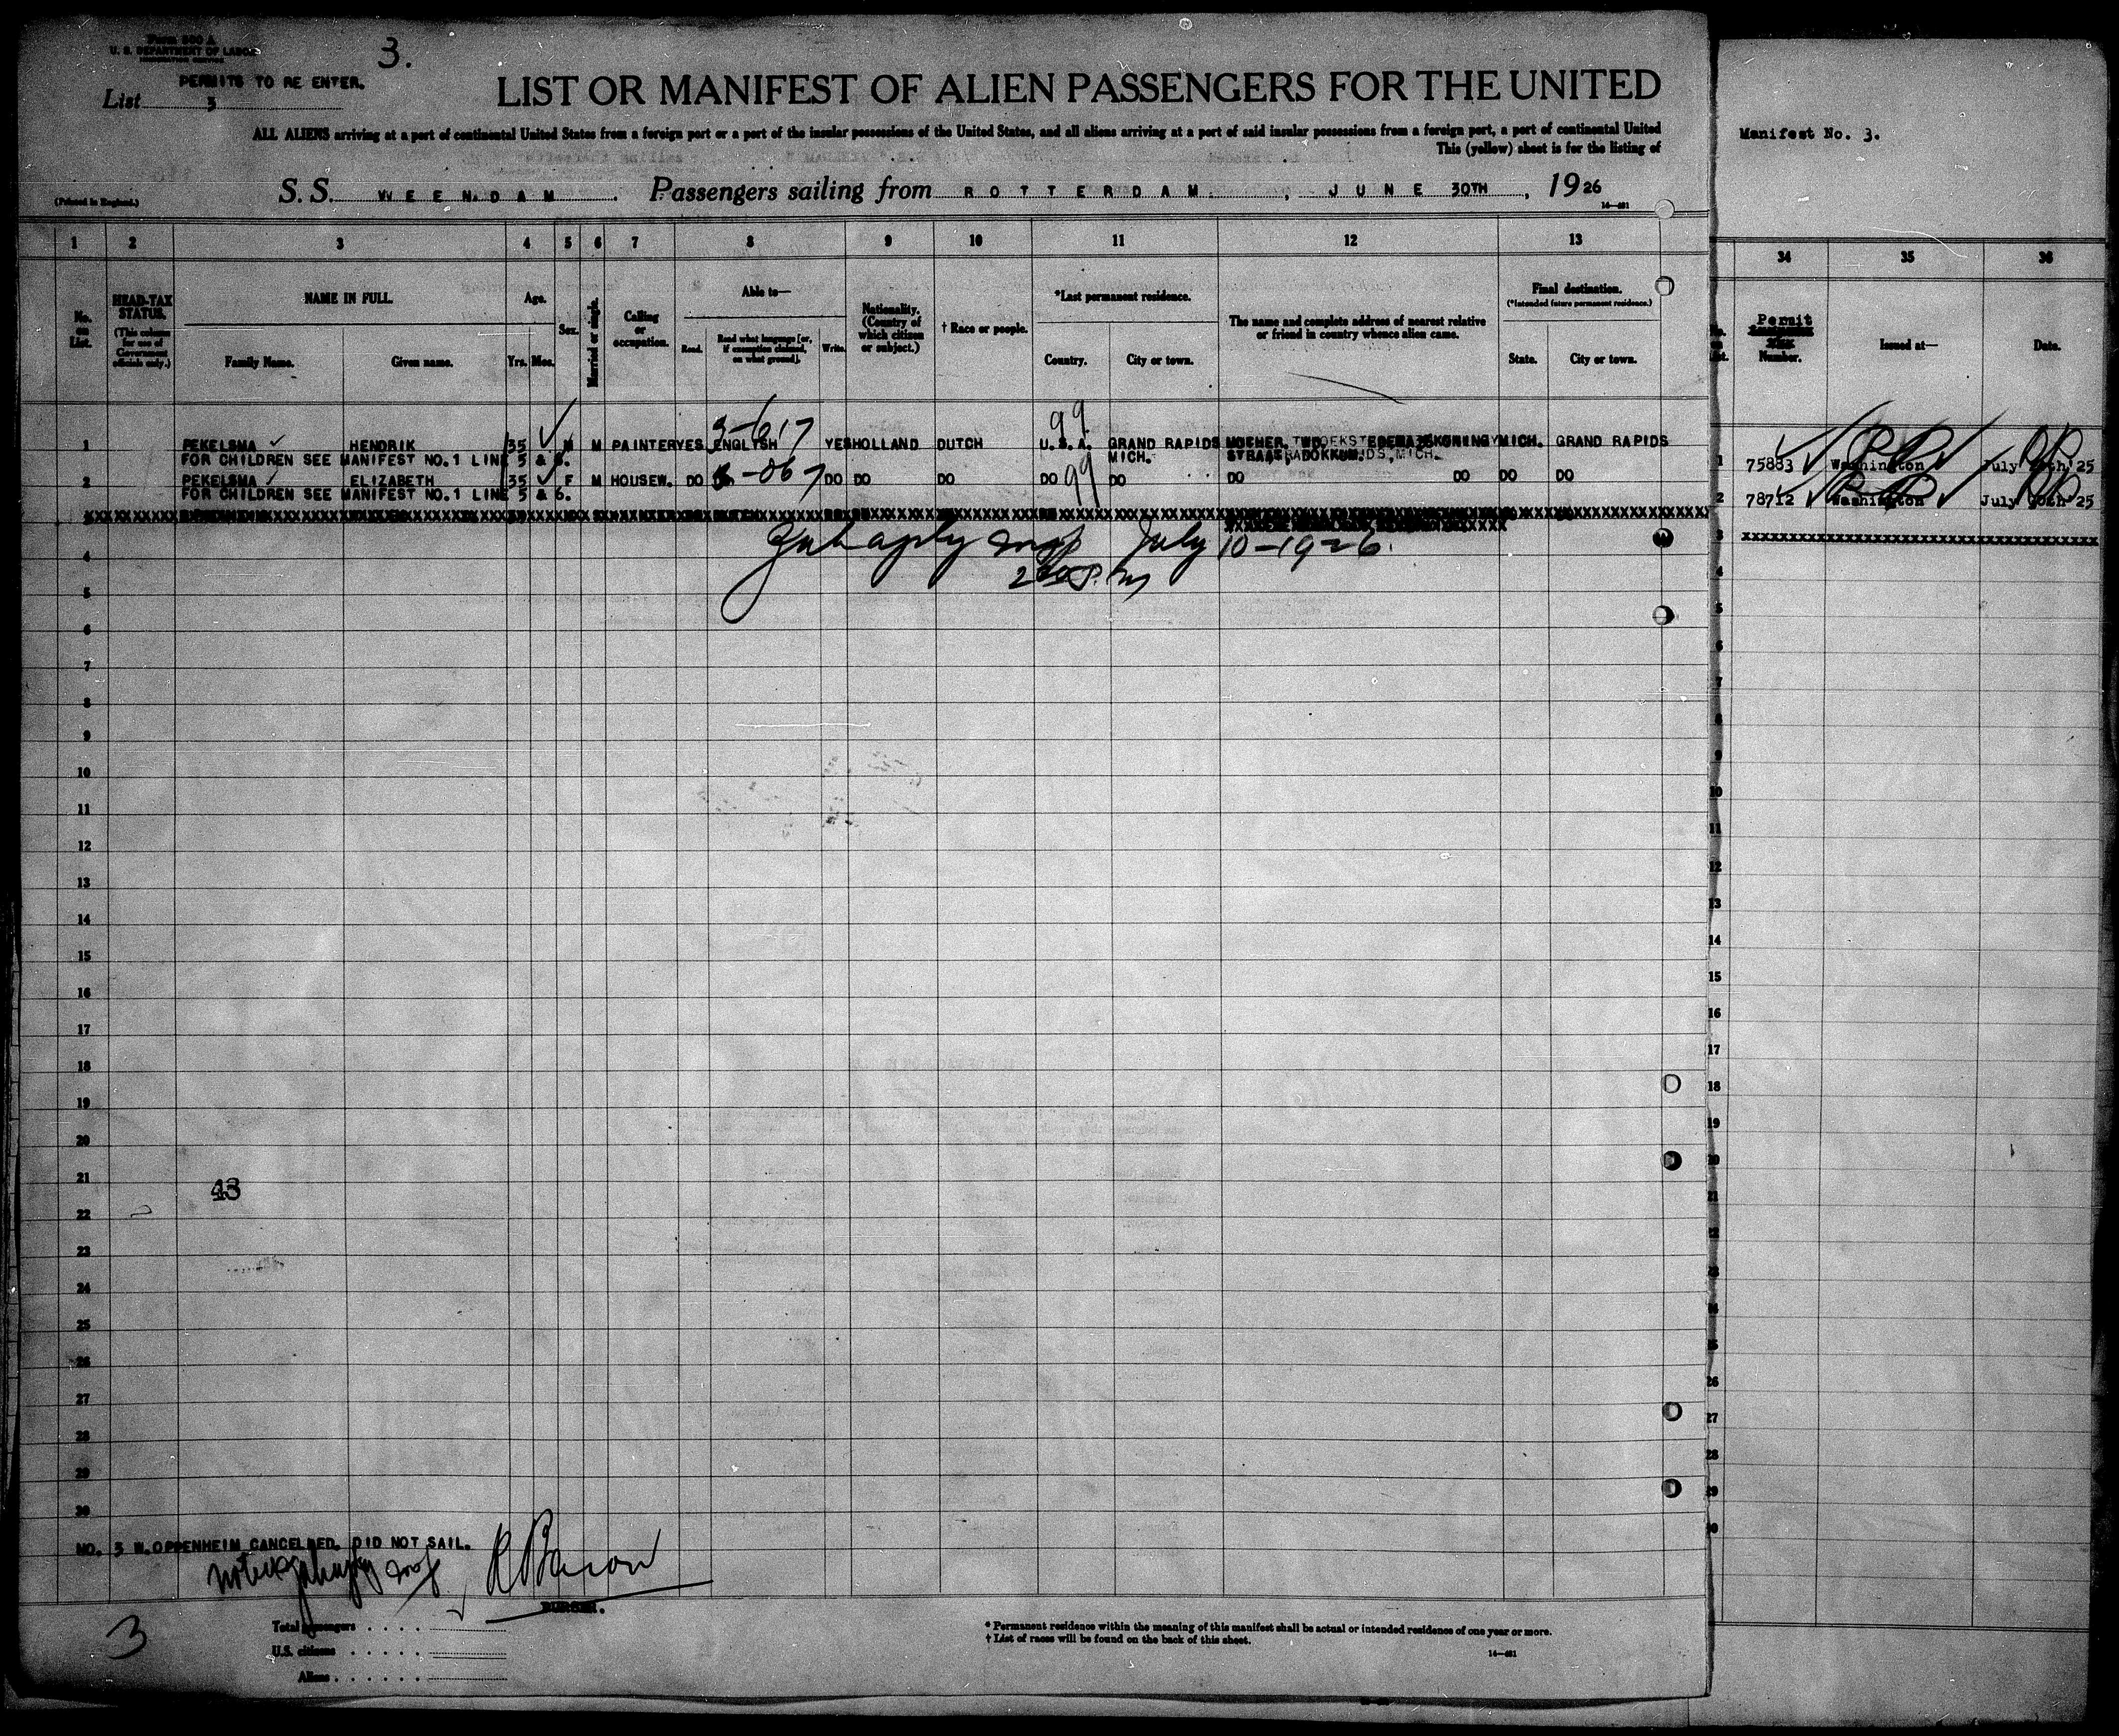 Form 500 A
U. S. DEPARTMENT OF LABOR
IMMIGRATION SERVICE
3.
PERMITS TO RE ENTER.
List 3
LIST OR MANIFEST OF ALIEN PASSENGERS FOR THE UNITED
ALL ALIENS arriving at a port of continental United States from a foreign port or a port of the insular possessions of the United States, and all aliens arriving at a port of said insular possessions from a foreign port, a port of continental United
This (yellow) sheet is for the listing of
Manifest No. 3.
(Printed in England.)
S. S. VEENDAM. Passengers sailing from ROTTERDAM., JUNE 30TH, 1926
14—481
1 2 3 4 5 6 7 8 9 10 11 12 13 34 35 36
No. on List.
HEAD-TAX STATUS.
(This column for use of Government officials only.)
NAME IN FULL.
Family Name. Given name.
Age.
Yrs. Mos.
Sex.
Married or single.
Calling or occupation.
Able to—
Read. Read what language [or, if exemption claimed, on what ground]. Write.
Nationality. (Country of which citizen or subject.)
† Race or people.
*Last permanent residence.
Country. City or town.
The name and complete address of nearest relative or friend in country whence alien came.
Final destination.
(*Intended future permanent residence.)
State. City or town.
Permit
Number.
Issued at—
Date.
99
1 PEKELSMA HENDRIK 35 M M PAINTER YES ENGLISH YES HOLLAND DUTCH U.S.A. GRAND RAPIDS MICH. GRAND RAPIDS
FOR CHILDREN SEE MANIFEST NO.1 LINE 5 & 6. MICH. DOKKUM.
1 75883 Washington
2 PEKELSMA ELIZABETH 35 F M HOUSEW. DO DO DO DO DO 99 DO DO DO DO DO
FOR CHILDREN SEE MANIFEST NO.1 LINE 5 & 6.
2 78712 Washington July 25
July 10-1926.
3
4
5
6
7
8
9
10
11
12
13
14
15
16
17
18
19
20
21
43
22
23
24
25
26
27
28
29
30
NO. 3 W.OPPENHEIM CANCELLED. DID NOT SAIL.
3
Total passengers
U.S. citizens
Aliens
* Permanent residence within the meaning of this manifest shall be actual or intended residence of one year or more.
† List of races will be found on the back of this sheet.
14—481